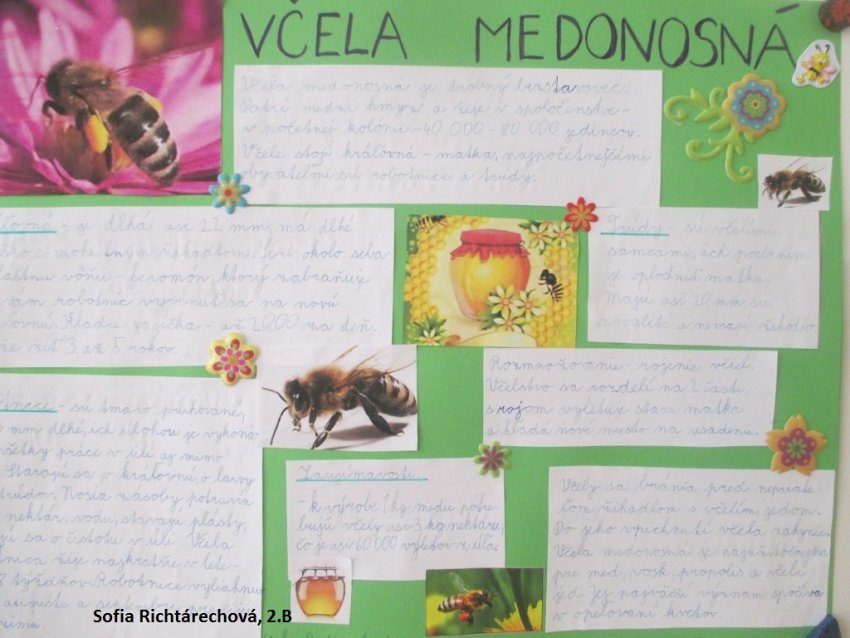 VČELA MEDONOSNÁ
Včela medonosná je drobný bezstavovec.
Patrí medzi hmyz a žije v spoločenstve -
v početnej kolónii - 40 000 - 80 000 jedincov.
Včele stojí kráľovná - matka, najpočetnejšími
obyvateľmi sú robotnice a trúdy.
- je dlhá asi 22 mm, má dlhé
okolo seba
vôňu - feromón, ktorý zabraňuje
robotníc vyvinúť sa na novú
Kladie vajíčka - až 2000 za deň.
žiť 3 až 5 rokov.
Trúdy - sú včelími
samcami, ich poslaním
je oplodniť matku.
Majú asi 20 mm, sú
zavalité a nemajú žihadlo
Rozmnožovanie - rojenie včiel.
Včelstvo sa rozdelí na 2 časti,
s rojom vyletuje stará matka
a hľadá nové miesto na usadenie.
- sú tmavo
mm dlhé, ich úlohou je vykoná
všetky práce v úli aj mimo
Starajú sa o kráľovnú, o larvy
trúdov. Nosia zásoby, potravu
nektár, vodu, stavajú plásty,
jú sa o čistotu v úli. Včela
žije najkratšie v lete -
8 týždňov. Robotnice vyliahnu
auguste a septembri
zimu.
Zaujímavosti:
- k výrobe 1 kg medu potre-
bujú včely asi 3 kg nektáru,
čo je asi 60 000 výletov z úľa.
Včely sa bránia pred nepriate-
ľom žihadlom s včelím jedom.
Po jeho vpichnutí včela zahynie.
Včela medonosná je najužitočnejšia
pre med, vosk, propolis a včelí
jed. Jej najväčší význam spočíva
v opeľovaní kvetov.
Sofia Richtárechová, 2.B